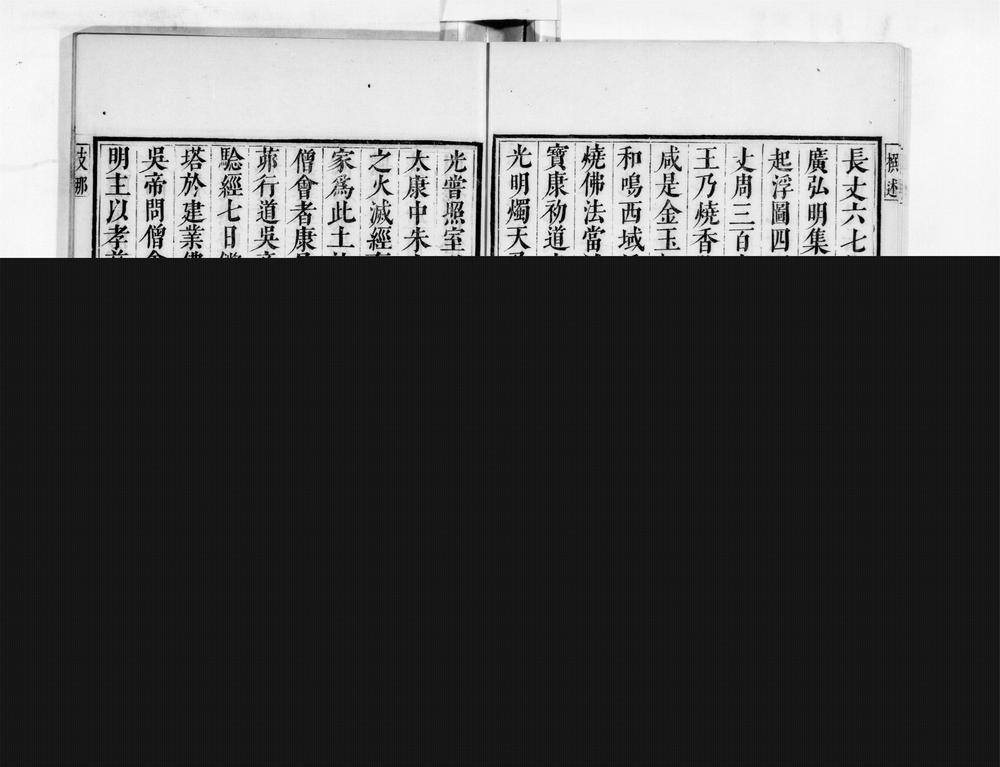 撰述
長丈六七
廣弘明集
起浮圖四
丈周三百
王乃燒香
咸是金玉
和鳴西域
燒佛法當
寶康初道
光明燭天
光嘗照室
太康中朱
之火滅經
家爲此土
僧會者康
茆行道吳
驗經七日
塔於建業
吳帝問僧
明主以孝
支那